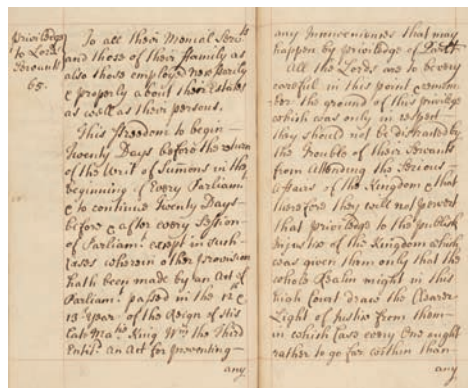 Priviledge
to Lords
Servants
65.
To all their Menial Servts
and those of their ffamily as
also those employed necessarily
& properly about their Estates
as well as their persons.
This ffreedom to begin
Twenty Days before the return
of the Writ of Sumons in the
beginning of Every Parliamt
& to continue Twenty Days
before & after every Session
of Parliamt except in such
Cases wherein other provision
hath been made by an Act of
Parliamt passed in the 12 &
13 year of the Reign of His
late Maty King Wm the Third
Entitd An Act for preventing
any
any Inconveniences that may
happen by priviledge of Parlt
All the Lords are to be very
careful in this point & remem-
ber the ground of this priviledge
which was only in respect
they should not be distracted by
the Trouble of their Servants
from Attending the Serious
Affairs of the Kingdom & that
therefore they will not pervert
that priviledge to the publick
Injustice of the Kingdom which
was given them only that the
whole Realm might in this
high Court draw the Clearer
Light of Justice from them
in which Case every One ought
rather to go far within than
any